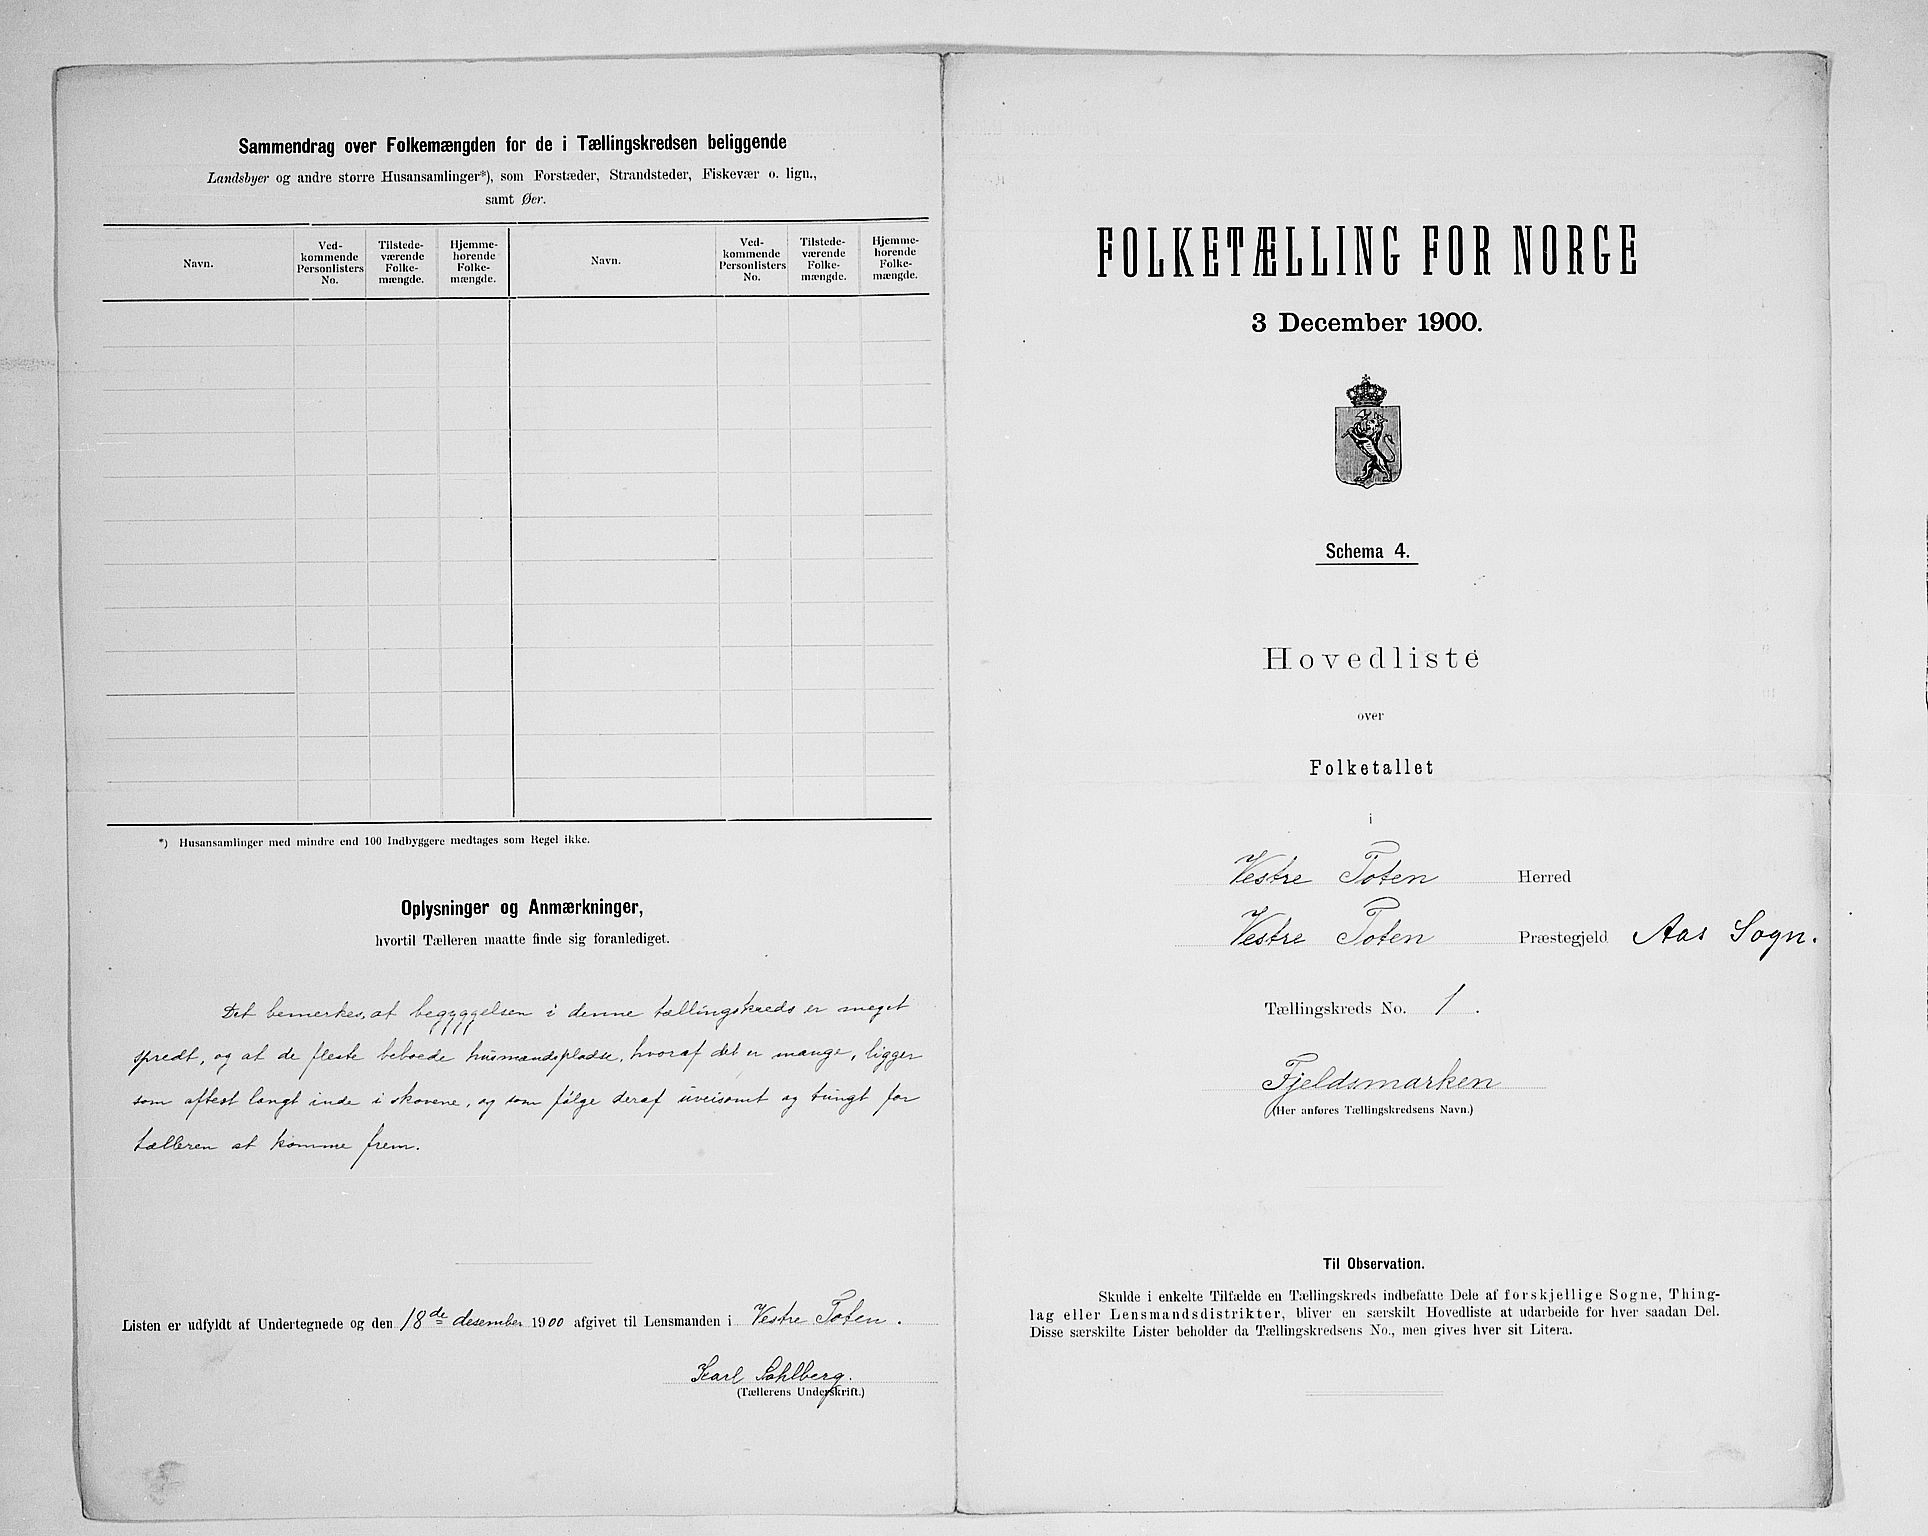 Sammendrag over Folkemængden for de i Tællingskredsen beliggende
Landsbyer og andre større Husansamlinger*), som Forstæder, Strandsteder, Fiskevær o. lign.,
samt Øer.
Navn.
Ved-
kommende
Personlisters
No.
Tilstede-
værende
Folke-
mængde.
Hjemme-
hørende
Folke-
mængde.
Navn.
Ved-
kommende
Personlisters
No.
Tilstede-
værende
Folke-
mængde.
Hjemme-
hørende
Folke-
mængde.
*) Husansamlinger med mindre end 100 Indbyggere medtages som Regel ikke.
Oplysninger og Anmærkninger,
hvortil Tælleren maatte finde sig foranlediget.
Det bemerkes, at begyggelsen i denne tællingskreds er meget
spredt, og at de fleste beboede husmandspladse, hvoraf det er mange, ligger
som oftest langt inde i skovene, og som følge deraf uveisomt og tungt for
tælleren at komme frem.
Listen er udfyldt af Undertegnede og den 18de desember 1900 afgivet til Lensmanden i Vestre Toten.
Karl Sohlberg.
(Tællerens Underskrift.)
FOLKETÆLLING FOR NORGE
3 December 1900.
Schema 4.
Hovedliste
over
Folketallet
i
Vestre Toten Herred
Vestre Toten Præstegjeld Aas Sogn.
Tællingskreds No. 1.
Fjeldsmarken
(Her anføres Tællingskredsens Navn.)
Til Observation.
Skulde i enkelte Tilfælde en Tællingskreds indbefatte Dele af forskjellige Sogne, Thing-
lag eller Lensmandsdistrikter, bliver en særskilt Hovedliste at udarbeide for hver saadan Del.
Disse særskilte Lister beholder da Tællingskredsens No., men gives hver sit Litera.